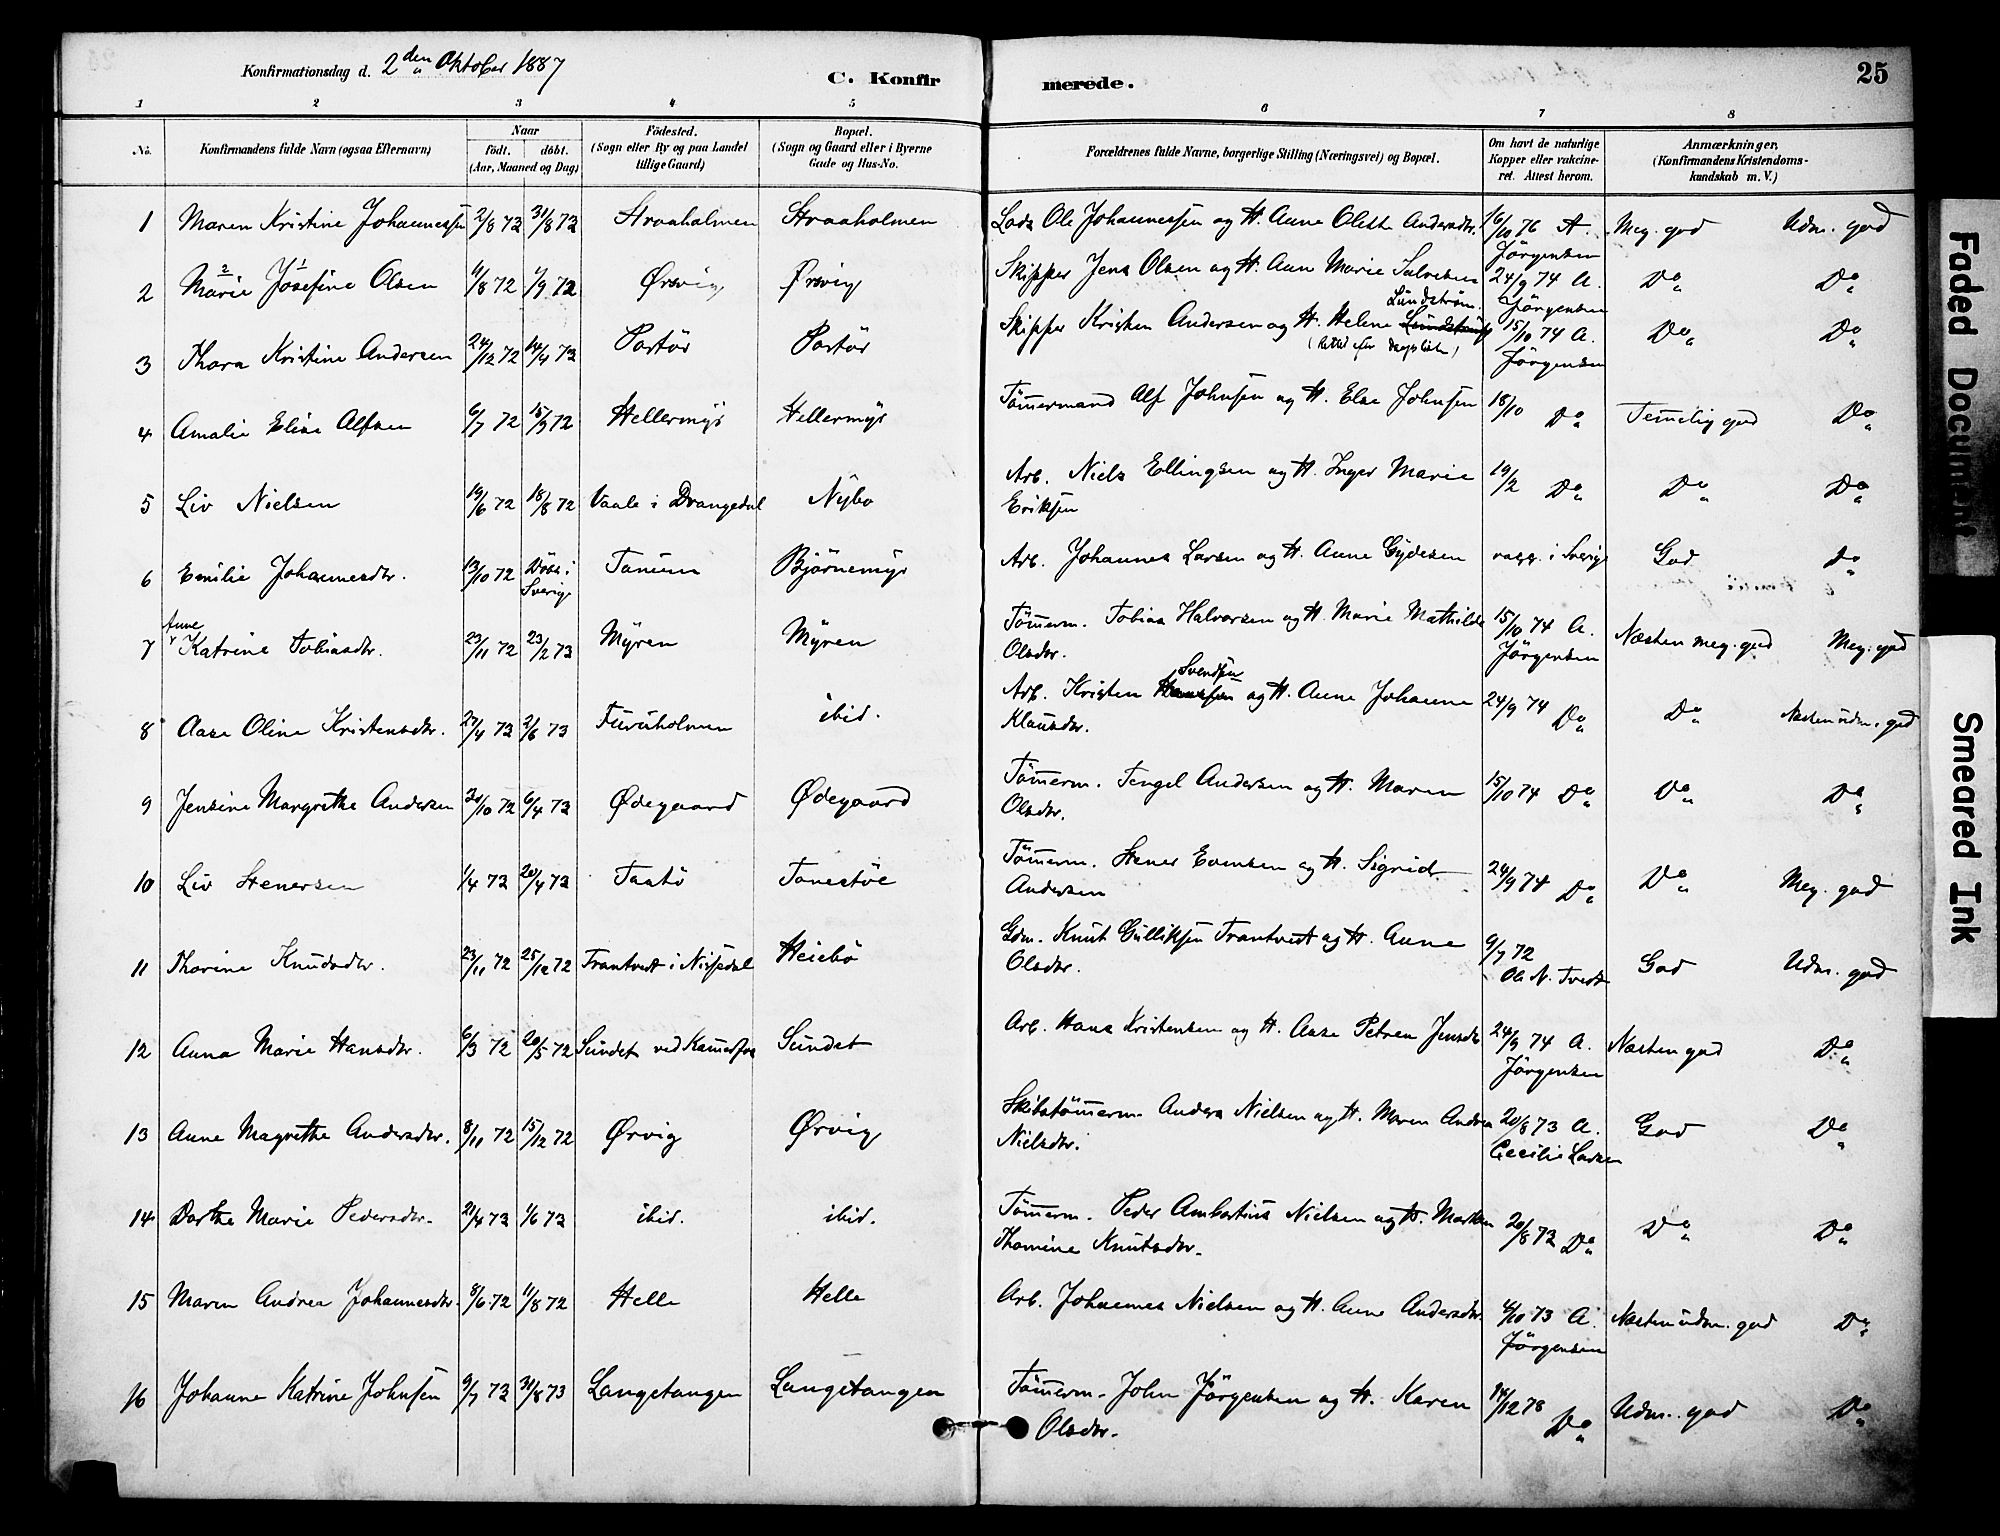 Konfirmationsdag d. 2den Oktober 1887
C. Konfir merede. 25
1 2 3 4 5 6 7 8
No. Konfirmandens fulde Navn (ogsaa Efternavn) Naar födt. döbt. (Aar, Maaned og Dag) Födested. (Sogn eller By og paa Landet tillige Gaard) Bopæl. (Sogn og Gaard eller i Byerne Gade og Hus-No. Forældrenes fulde Navne, borgerlige Stilling (Næringsvei) og Bopæl. Om havt de naturlige Kopper eller vakcineret. Attest herom. Anmærkninger, (Konfirmandens Kristendomskundskab m. V.)
1 Maren Kristine Johannessen 2/8 73 31/8 73 Straaholmen Straaholmen Lods Ole Johannessen og H. Anne Olette Andersdtr. 16/10 76 A. Jörgensen Meg. god Udm. god
2 Marie Josefine Olsen 11/8 72 1/9 72 Ørsvig Ørsvig Skipper Jens Olsen og H. Anne Marie Salvesen 24/9 74 A. Jörgensen Do Do
3 Thora Kristine Andersen 24/12 72 14/4 73 Portör Portör Skipper Kristen Andersen og H. Helene Lundström 15/10 74 A. Jörgensen Do Do
4 Amalie Elise Alfsen 6/7 72 15/9 72 Hellermyr Hellermyr Tömmermand Alf Johnsen og H. Else Johnsen 18/10 Do Temelig god Do
5 Liv Nielsen 19/6 72 18/8 72 Vaale i Drangedal Nybo Arb. Niels Ellingsen og H. Inger Marie Eriksen 19/2 Do Do Do
6 Emilie Johannesdtr. 13/10 72 Döbt i Sverige Tanum Björnemyr Arb. Johannes Larsen og H. Anne Gydesen vacc. i Sverige God do
7 Anne Katrine Tobiasdtr. 23/11 72 23/2 73 Myren Myren Tömerm. Tobias Halvorsen og H. Marie Mathilde Olsdtr. 15/10 74 A. Jörgensen Næsten meg. god Meg. god
8 Aase Oline Kristensdtr. 27/4 73 2/6 73 Furuholmen ibid. Arb. Kristen Svendsen og H. Anne Johanne Klausdtr. 24/9 74 Do Do Næsten udm. god
9 Jensine Margrethe Andersen 30/10 72 6/4 73 Ødegaard Ødegaard Tömerm. Tengel Andersen og H. Maren Olsdtr. 15/10 74 Do Do Do
10 Liv Stenersen 1/4 73 20/4 73 Taatö Tonestöe Tömerm. Stener Evensen og H. Sigrid Andersen 24/9 74 Do Do Meg. god
11 Thorine Knudsdtr. 23/11 72 25/12 72 Trantvedt i Nissedal Heiebö Gdm. Knut Gulliksen Trantvedt og H. Anne Olsdtr. 9/7 72 Ole N. Tvedt God Udm. god
12 Anna Marie Hansdtr. 6/3 72 20/5 72 Sundet ved Kamerfos Sundet Arb. Hans Kristensen og H. Aase Petrea Jensdtr 24/9 74 A. Jörgensen Næsten god Do
13 Anne Magrethe Andersdtr. 8/11 72 15/12 72 Ørvig Ørvig Skibstömerm. Anders Nielsen og H. Maren Andrea Nielsdtr. 20/8 73 A. Cecilie Larsen God Do
14 Dorthe Marie Pedersdtr. 21/4 73 1/6 73 ibid. ibid. Tömerm. Peder Ambortius Nielsen og H. Marthe Thomine Knutsdtr. 20/8 73 Do Do Do
15 Maren Andrea Johannesdtr. 8/6 72 11/8 72 Helle Helle Arb. Johannes Nielsen og H. Anne Andersdtr. 6/10 73 A. Jörgensen Næsten udm. god Do
16 Johanne Katrine Johnsen 9/7 73 31/8 73 Langetangen Langetangen Tömerm. John Jörgensen og H. Karen Olsdtr. 14/12 78 Do Udm. god Do
Faded Document
Smeared Ink